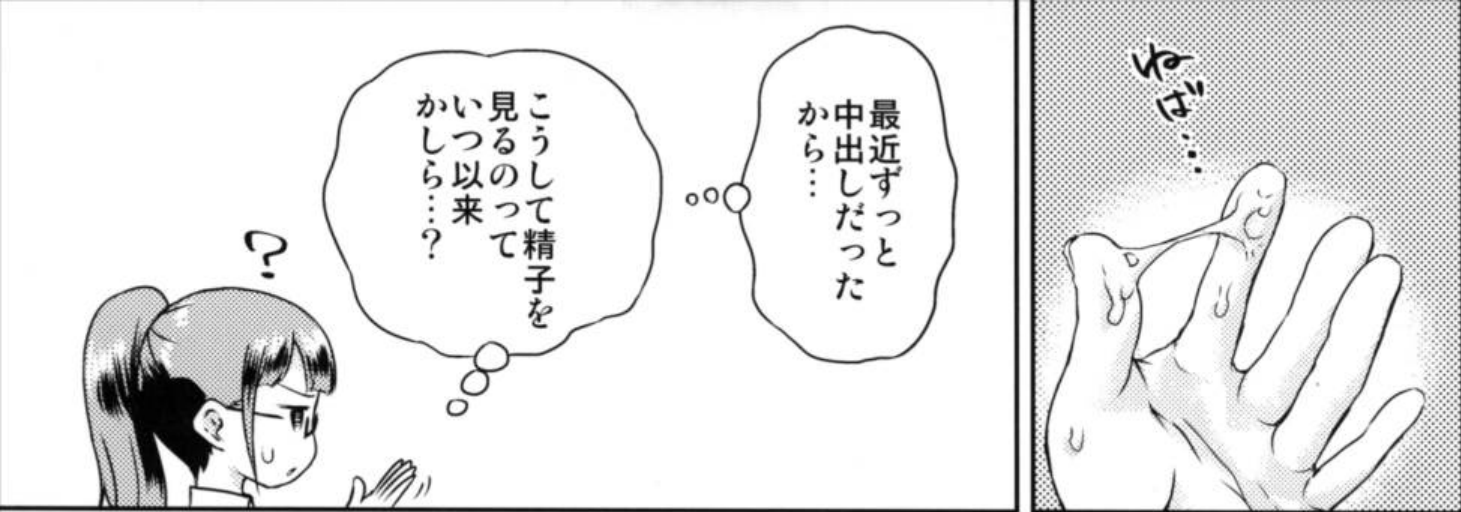 ねば…
最近ずっと
中出しだった
から…
こうして精子を
見るのって
いつ以来
かしら…?
?